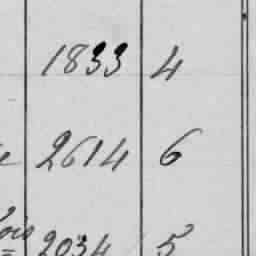 1833 4
2614 6
2034 5